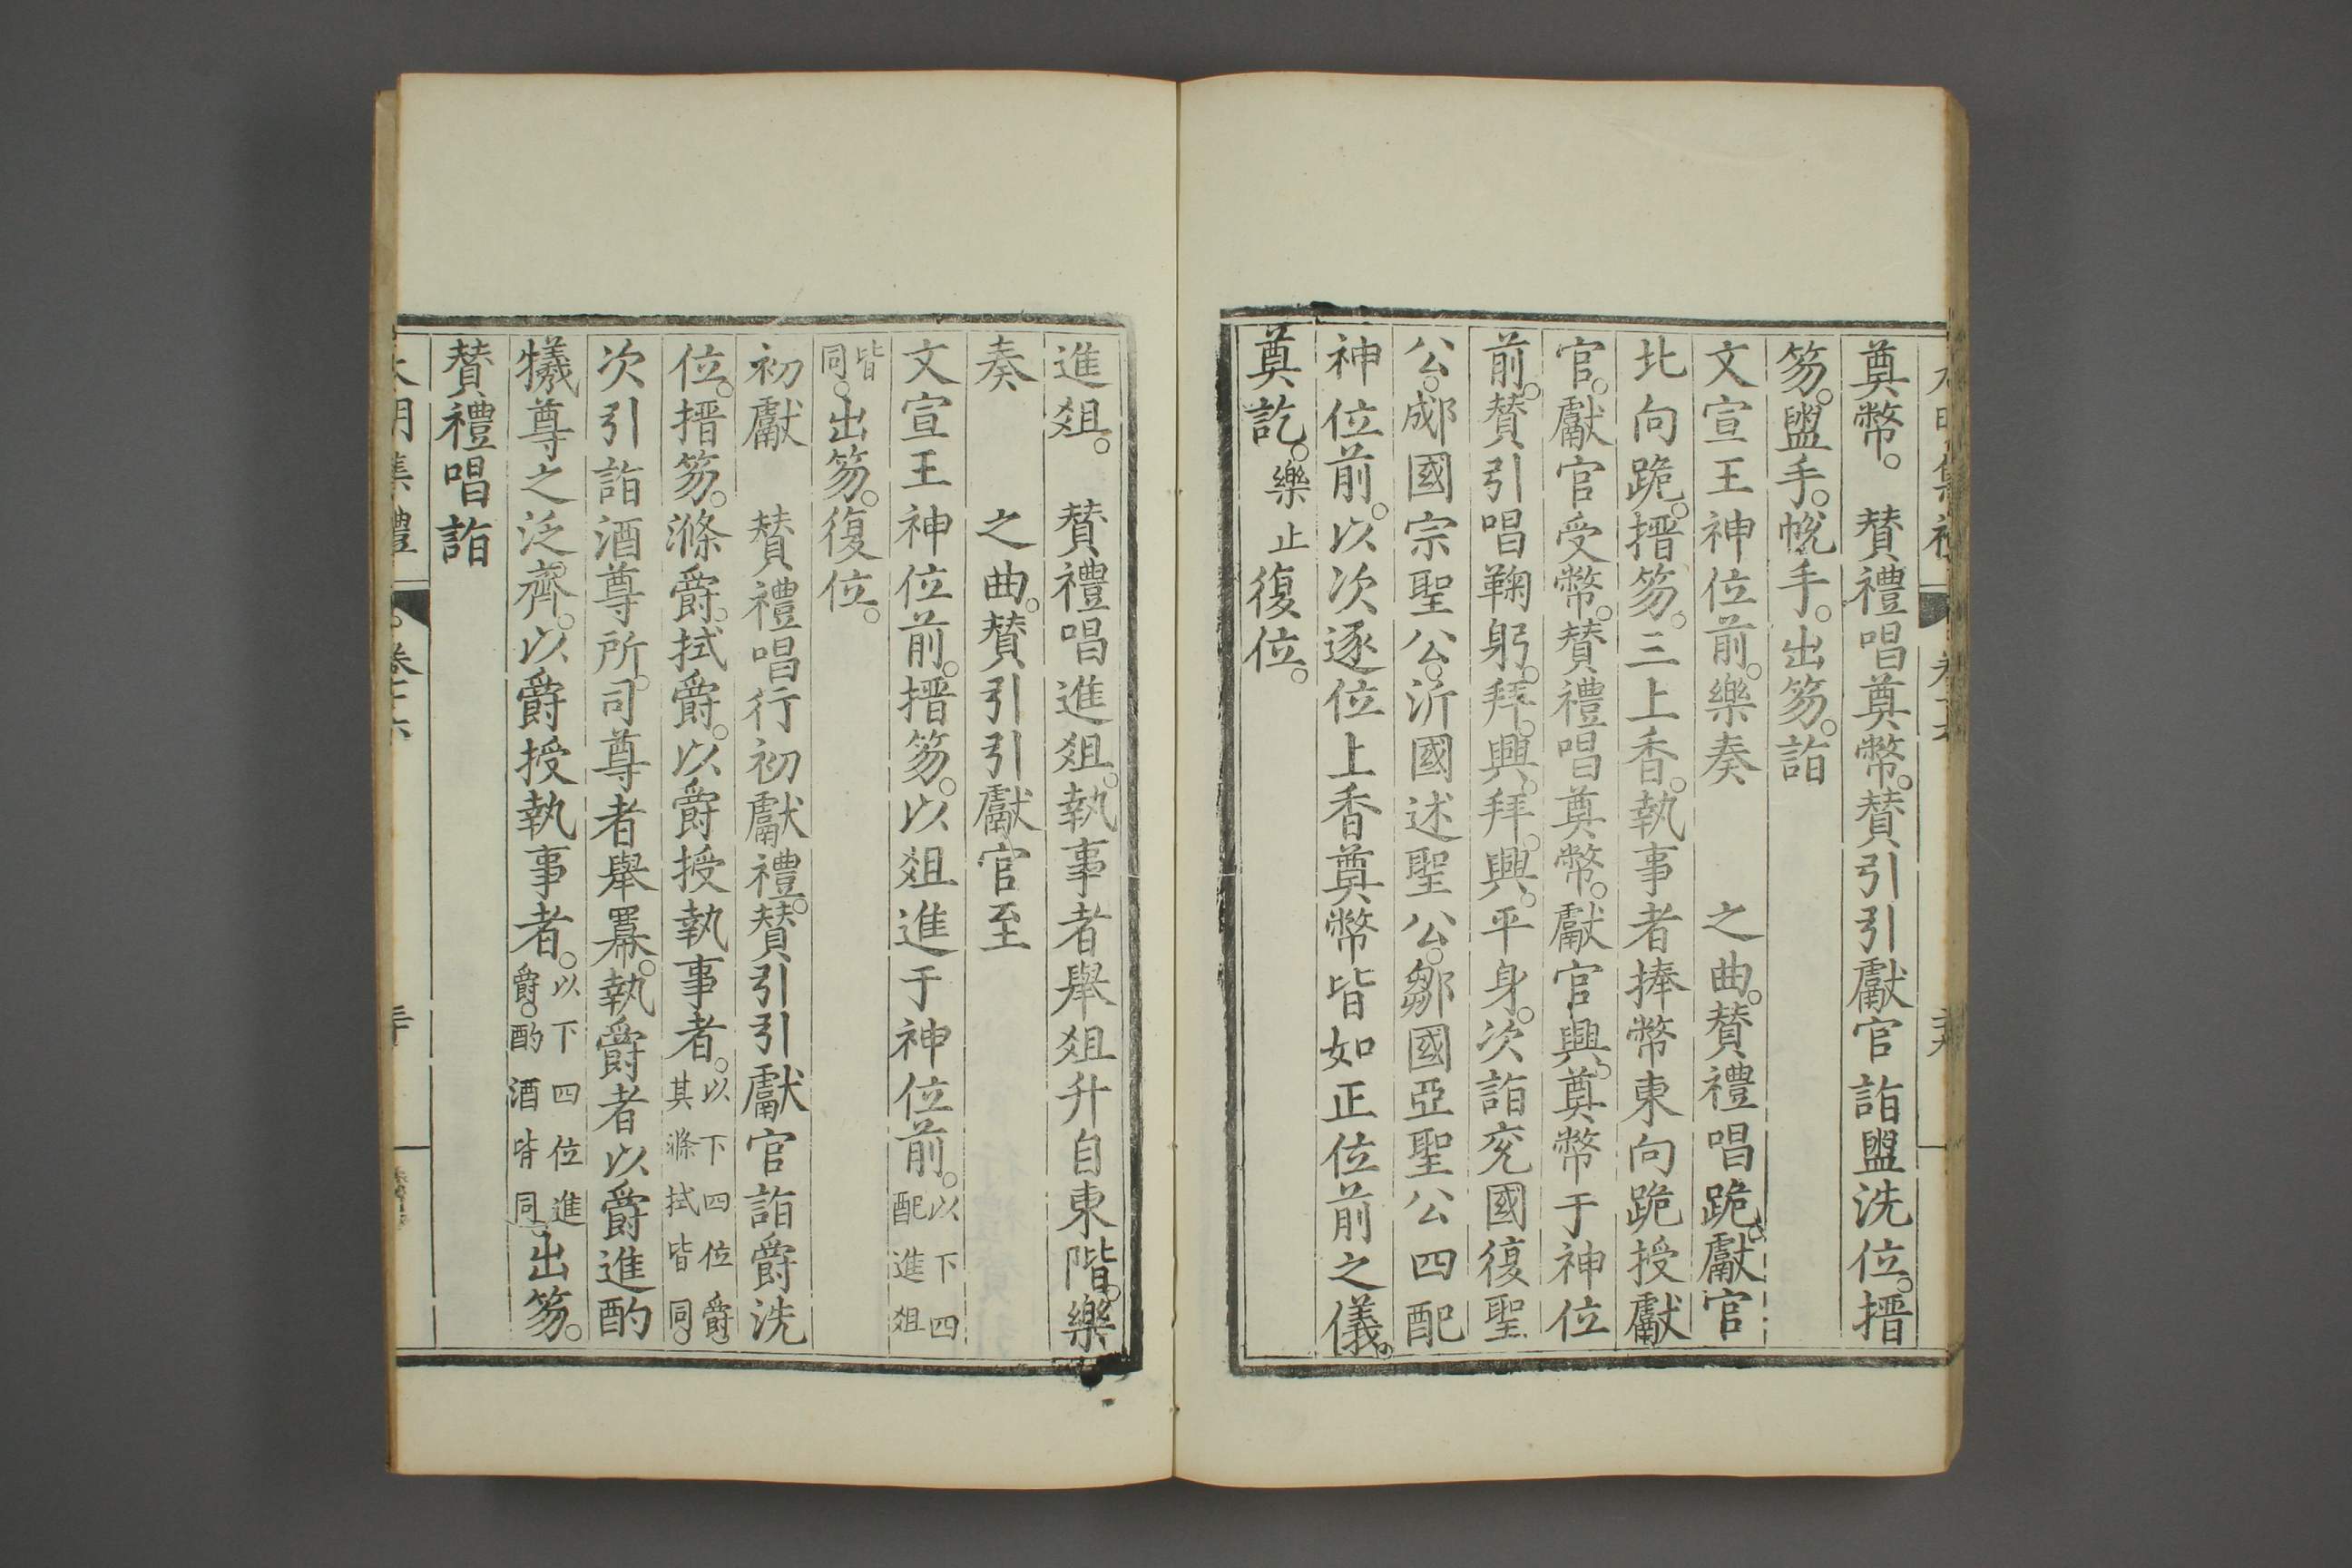 奠幣。　贊禮唱奠幣。贊引引獻官詣盥洗位。搢
笏。盥手。帨手。出笏。詣
文宣王神位前。樂奏　　之曲。贊禮唱跪。獻官
北向跪。搢笏。三上香。執事者捧幣東向跪授獻
官。獻官受幣。贊禮唱奠幣。獻官興。奠幣于神位
前。贊引唱鞠躬。拜。興。拜。興。平身。次詣兖國復聖
公。郕國宗聖公。沂國述聖公。鄒國亞聖公四配
神位前。以次逐位上香奠幣皆如正位前之儀。
奠訖。樂止復位。
進俎。　贊禮唱進俎。執事者舉俎升自東階。樂
奏　　之曲。贊引引獻官至
文宣王神位前。搢笏。以俎進于神位前。以下四配進俎
皆同。出笏。復位。
初獻　贊禮唱行初獻禮。贊引引獻官詣爵洗
位。搢笏。滌爵。拭爵。以爵授執事者。以下四位爵。其滌拭皆同。
次引詣酒尊所。司尊者舉羃。執爵者以爵進酌
犧尊之泛齊。以爵授執事者。以下四位進爵。酌酒皆同。出笏。
贊禮唱詣
大明集禮　卷十六　三十